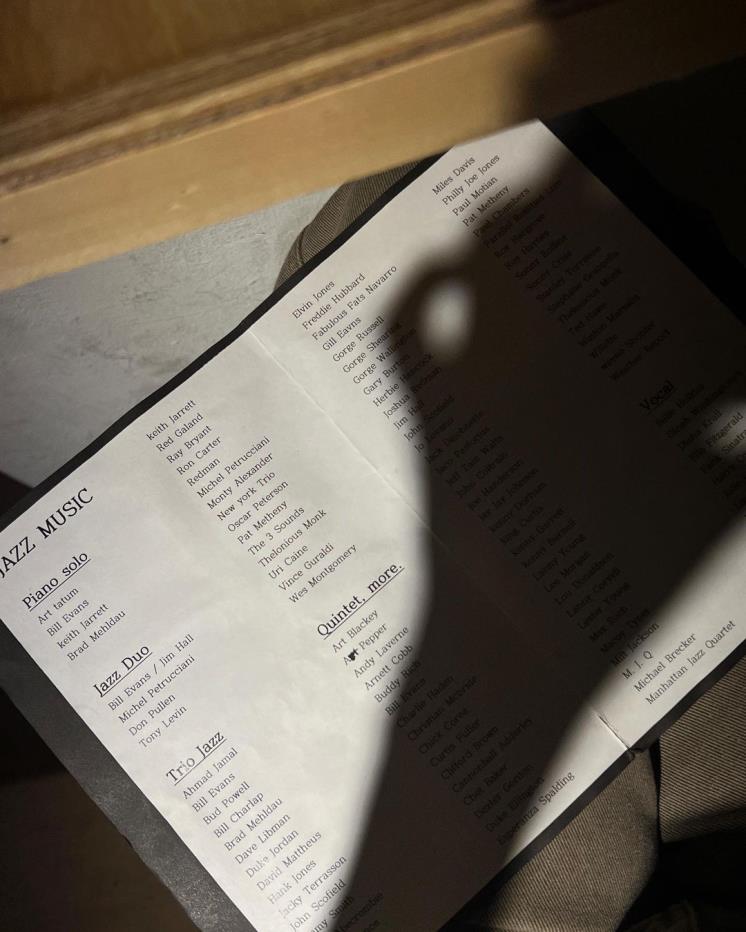 JAZZ MUSIC
Piano solo
Art tatum
Bill Evans
keith Jarrett
Brad Mehldau
Jazz Duo
Bill Evans / Jim Hall
Michel Petrucciani
Don Pullen
Tony Levin
Trio Jazz
Ahmad Jamal
Bill Evans
Bud Powell
Bill Charlap
Brad Mehldau
Dave Libman
Duke Jordan
David Mattheus
Hank Jones
Jacky Terrasson
John Scofield
Smith
keith Jarrett
Red Galand
Ray Bryant
Ron Carter
Redman
Michel Petrucciani
Monty Alexander
New york Trio
Oscar Peterson
Pat Metheny
The 3 Sounds
Thelonious Monk
Uri Caine
Vince Guraldi
Wes Montgomery
Quintet, more.
Art Blackey
Pepper
Andy Laverne
Arnett Cobb
Buddy Rich
Bill Evans
Charlie Haden
Christian Mcbride
Chick Corea
Curtis Fuller
Clifford Brown
Cannonball Adderley
Chet Baker
Dexter Gordon
Duke Ellington
Esperanza Spalding
Elvin Jones
Freddie Hubbard
Fabulous Fats Navarro
Gill Eavns
Gorge Russell
Gorge Shearing
Gorge Wallington
Gary Burton
Herbie Hancock
Joshua Redman
Jim Hall
John Scofield
Jack Dejohnette
Jaco Pastorius
Jeff Tain Watts
John Coltrane
Joe Henderson
Jay Jay Johnson
Kenny Dorham
King Curtis
Kenny Garrett
Kenny Burrell
Lammy Young
Lee Morgan
Lou Donaldson
Lester Young
Max Roach
McCoy Tyner
Milt Jackson
M. J. Q
Michael Brecker
Manhattan Jazz Quartet
Miles Davis
Philly Joe Jones
Paul Motian
Pat Metheny
Paul Chambers
Roy Hargrove
Roy Haynes
Sonny Rollins
Sonny Criss
Stanley Turrentine
Stephane Grappelli
Thelonious Monk
Wynton Marsalis
Wayne Shorter
Weather Report
Vocal
Billie Holiday
Diana Krall
Ella Fitzgerald
Frank Sinatra